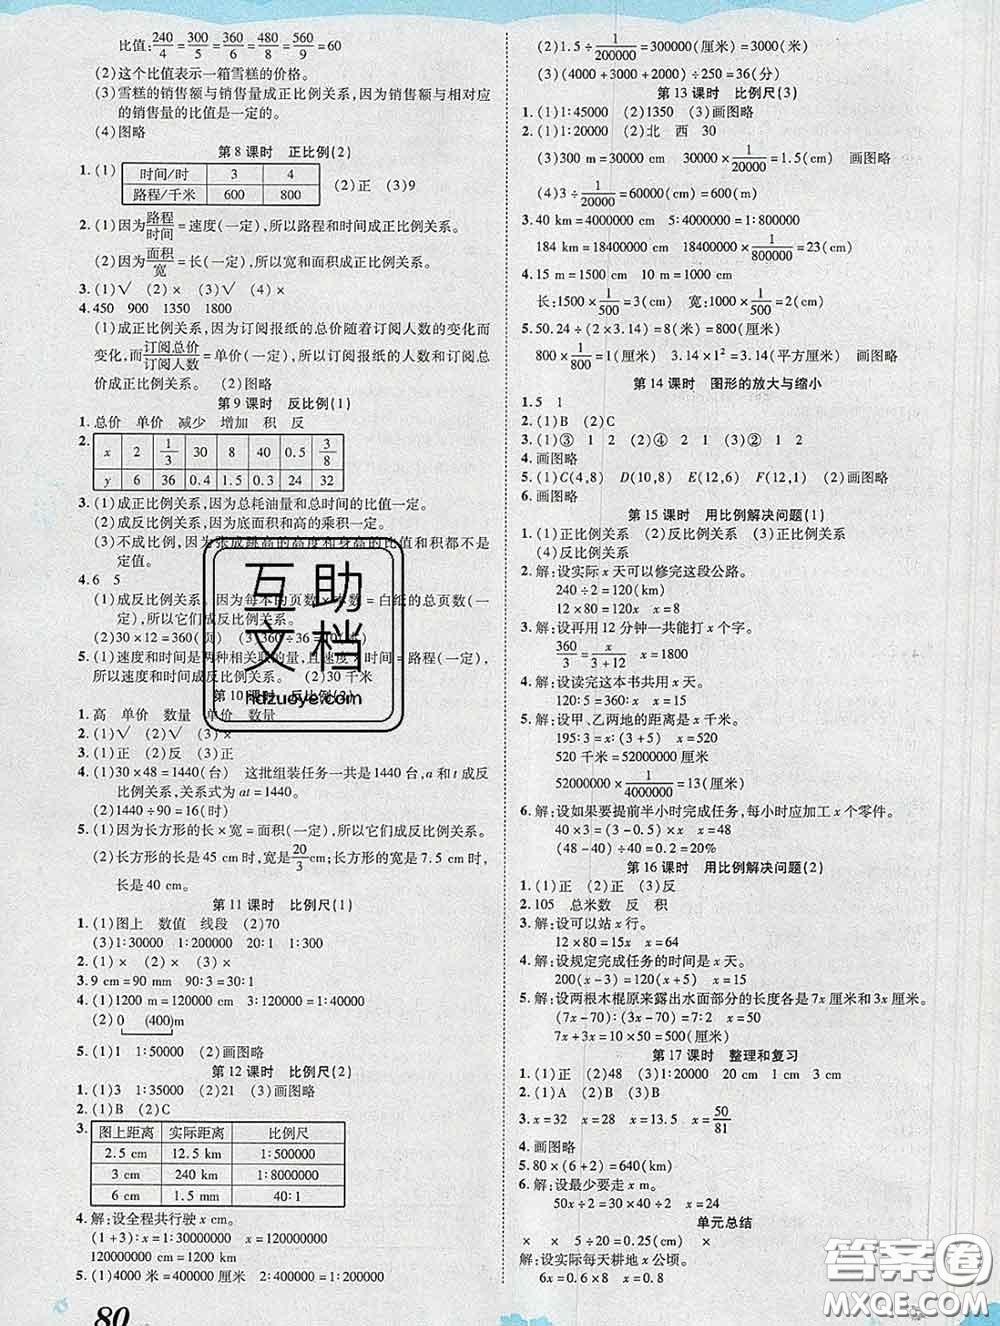 比值:240/4=300/5=360/6=480/8=560/9=60
(2)这个比值表示一箱雪糕的价格。
(3)雪糕的销售额与销售量成正比例关系,因为销售额与相对应
的销售量的比值是一定的。
(4)图略
第 8 课时 正比例(2)
1.(1) 时间/时 3 4
路程/千米 600 800
(2)正 (3)9
2.(1)因为路程/时间=速度(一定),所以路程和时间成正比例关系。
(2)因为面积/宽=长(一定),所以宽和面积成正比例关系。
3.(1)√ (2)× (3)√ (4)×
4.450 900 1350 1800
(1)成正比例关系,因为订阅报纸的总价随着订阅人数的变化而
变化,而订阅总价/订阅人数=单价(一定),所以订阅报纸的人数和订阅总
价成正比例关系。 (2)图略
第 9 课时 反比例(1)
1.总价 单价 减少 增加 积 反
2. x 2 1/3 30 8 40 0.5 3/8
y 6 36 0.4 1.5 0.3 24 32
3.(1)成正比例关系,因为总耗油量和总时间的比值一定。
(2)成反比例关系,因为底面积和高的乘积一定。
(3)不成比例,因为张成跳高的高度和身高的比值和积都不是
定值。
4.6 5
(1)成反比例关系,因为每本的页数×本数=白纸的总页数(一
定),所以它们成反比例关系。
(2)30×12=360(页) (3)360÷36=10(本)
5.(1)速度和时间是两种相关联的量,且速度×时间=路程(一定),
所以速度和时间成反比例关系。 (2)30 千米
第 10 课时 反比例(2)
1.高 单价 数量 单价 数量
2.(1)√ (2)√ (3)×
3.(1)正 (2)反 (3)正
4.(1)30×48=1440(台) 这批组装任务一共是1440台,a和t成反
比例关系,关系式为at=1440。
(2)1440÷90=16(时)
5.(1)因为长方形的长×宽=面积(一定),所以它们成反比例关系。
(2)长方形的长是45 cm时,宽是20/3 cm;长方形的宽是7.5 cm时,
长是40 cm。
第 11 课时 比例尺(1)
1.(1)图上 数值 线段 (2)70
(3)1:30000 1:200000 20:1 1:300
2.(1)× (2)×
3.9 cm=90 mm 90:3=30:1
4.(1)1200 m=120000 cm 3:120000=1:40000
(2)0 (400)m
5.(1)1 1:50000 (2)画图略
第 12 课时 比例尺(2)
1.(1)3 1:35000 (2)21 (3)画图略
2.(1)B (2)C
3. 图上距离 实际距离 比例尺
2.5 cm 12.5 km 1:500000
3 cm 240 km 1:8000000
6 cm 1.5 mm 40:1
4.解:设全程共行驶x cm。
(1+3):x=1:30000000 x=120000000
120000000 cm=1200 km
5.(1)4000 米=400000 厘米 2:400000=1:200000
80
(2)1.5÷1/200000=300000(厘米)=3000(米)
(3)(4000+3000+2000)÷250=36(分)
第 13 课时 比例尺(3)
1.(1)1:45000 (2)1350 (3)画图略
2.(1)1:20000 (2)北 西 30
(3)300 m=30000 cm 30000×1/20000=1.5(cm) 画图略
(4)3÷1/20000=60000(cm)=600(m)
3.40 km=4000000 cm 5:4000000=1:800000
184 km=18400000 cm 18400000×1/800000=23(cm)
4.15 m=1500 cm 10 m=1000 cm
长:1500×1/500=3(cm) 宽:1000×1/500=2(cm)
5.50.24÷(2×3.14)=8(米)=800(厘米)
800×1/800=1(厘米) 3.14×1²=3.14(平方厘米) 画图略
第 14 课时 图形的放大与缩小
1.5 1
2.(1)B (2)C
3.(1)③ 1 2 (2)④ 2 1 (3)② 1 2
4.画图略
5.(1)C(4,8) D(10,8) E(12,6) F(12,4) (2)画图略
6.画图略
第 15 课时 用比例解决问题(1)
1.(1)正比例关系 (2)反比例关系 (3)正比例关系
(4)反比例关系
2.解:设实际x天可以修完这段公路。
240÷2=120(km)
12×80=120x x=8
3.解:设再用12分钟一共能打x个字。
360/3=x/(3+12) x=1800
4.解:设读完这本书共用x天。
120:5=360:x x=15
5.解:设甲、乙两地的距离是x千米。
195:3=x:(3+5) x=520
520 千米=52000000 厘米
52000000×1/4000000=13(厘米)
6.解:设如果要提前半小时完成任务,每小时应加工x个零件。
40×3=(3-0.5)x x=48
(48-40)÷40=0.2=20%
第 16 课时 用比例解决问题(2)
1.(1)正 (2)正 (3)反
2.105 总米数 反 积
3.解:设可以站x行。
12×80=15x x=64
4.解:设规定完成任务的时间是x天。
200(x-3)=150(x+5) x=15
5.解:设两根木棍原来露出水面部分的长度各是7x厘米和3x厘米。
(7x-70):(3x-70)=7:2 x=50
7x+3x=10×50=500(厘米)
第 17 课时 整理和复习
1.(1)正 (2)48 (3)1:20000 20 cm 1 cm 3 cm
2.(1)A (2)B (3)B
3.x=32 x=28 x=13.5 x=50/81
4.画图略
5.80×(6+2)=640(km)
6.解:设最少要走x m。
50x÷2=30×40÷2 x=24
单元总结
× × 5÷20=0.25(cm) ×
解:设实际每天耕地x公顷。
6x=0.6×8 x=0.8
互助
文档
hdzuoye.com
答案圈
MXQE.COM